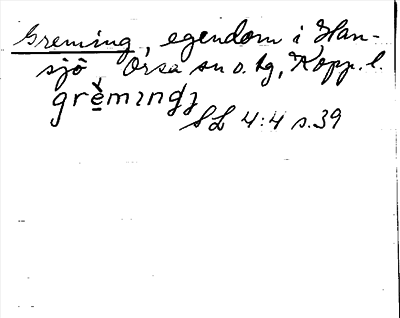 Greming, egendom i Han-
sjö Orsa sn o. tg, Kopp. l.
grèmıŋdʒ
SL 4:4 s. 39